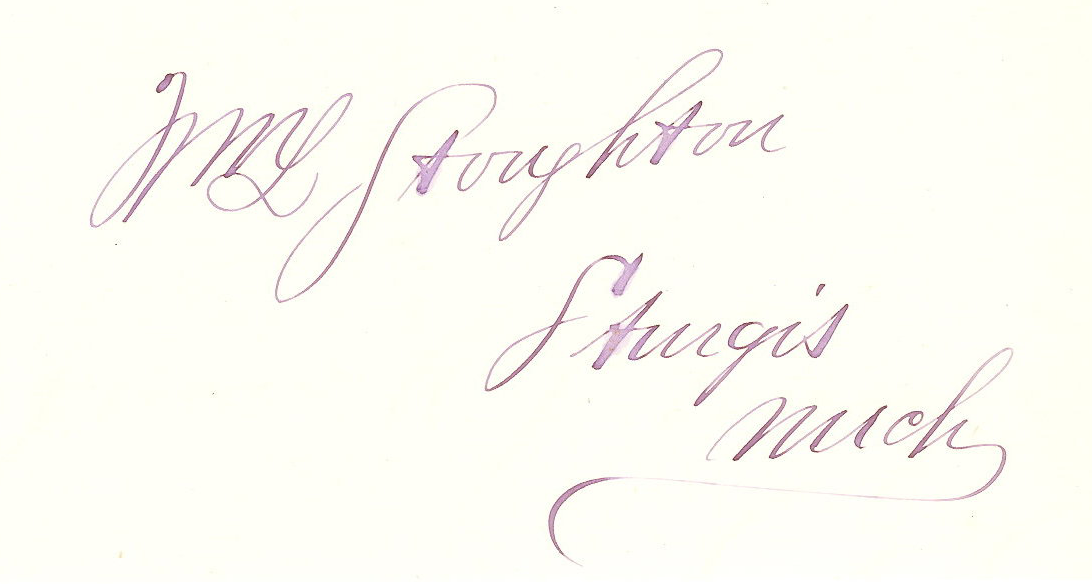 Wm L Stoughton
Sturgis
Mich